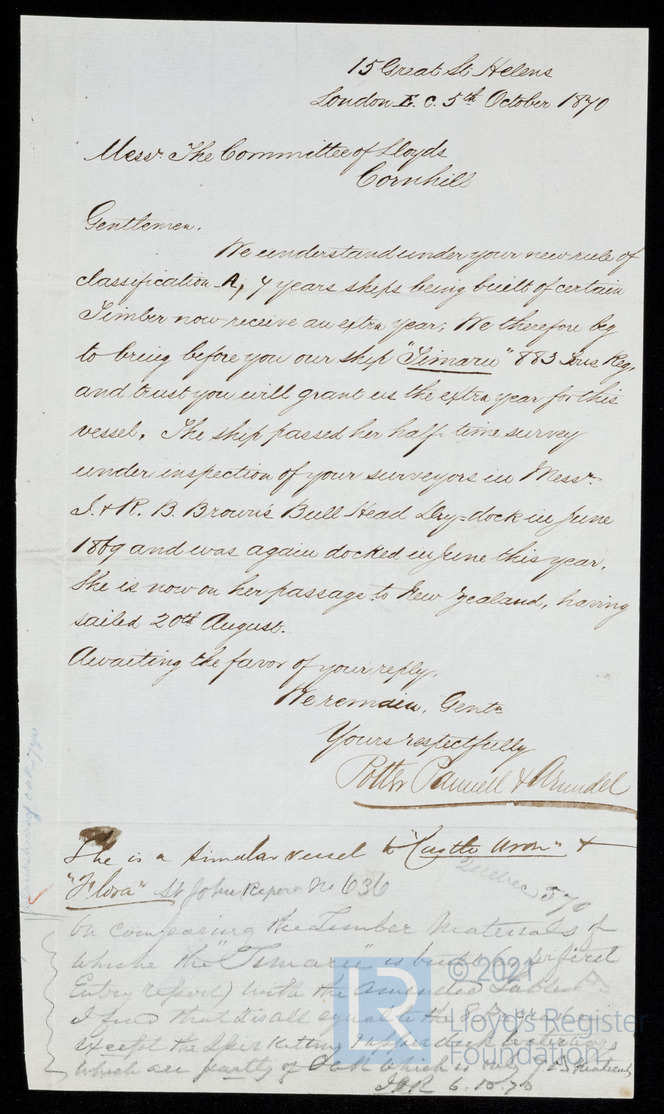 15 Great St Helens
London E. C. 5th October 1870
Messrs The Committee of Lloyds
Cornhill
Gentlemen.
We understand under your new rule of
classification A, 7 years ships being built of certain
Timber now receive an extra year; We therefore beg
to bring before you our ship "Timaru" 883 Tons Reg.
and trust you will grant us the extra year for this
vessel. The ship passed her half-time survey
under inspection of your surveyors in Messrs
J. & R. B. Brown's Bull Head Dry-dock in June
1869 and was again docked in June this year.
She is now on her passage to New Zealand, having
sailed 20th August.
Awaiting the favor of your reply.
We remain, Gentn
Yours respectfully
Potter Pannell & Arundel
She is a similar vessel to "Castle Avon" &
"Flora" St John Report No 636
Quebec 570
On comparing the Timber Materials of
which the "Timaru" is built (per first
Entry report) with the Amended Table
I find that it is all equal to the 8 years
except the Spirketting & upper deck
which are partly of Oak which is only 7
6.10.70
© 2021
Lloyd's Register
Foundation
LR